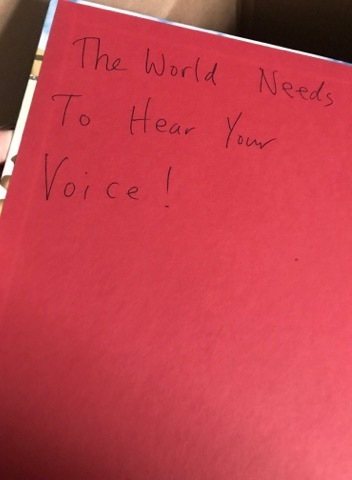 The World Needs
To Hear Your
Voice!